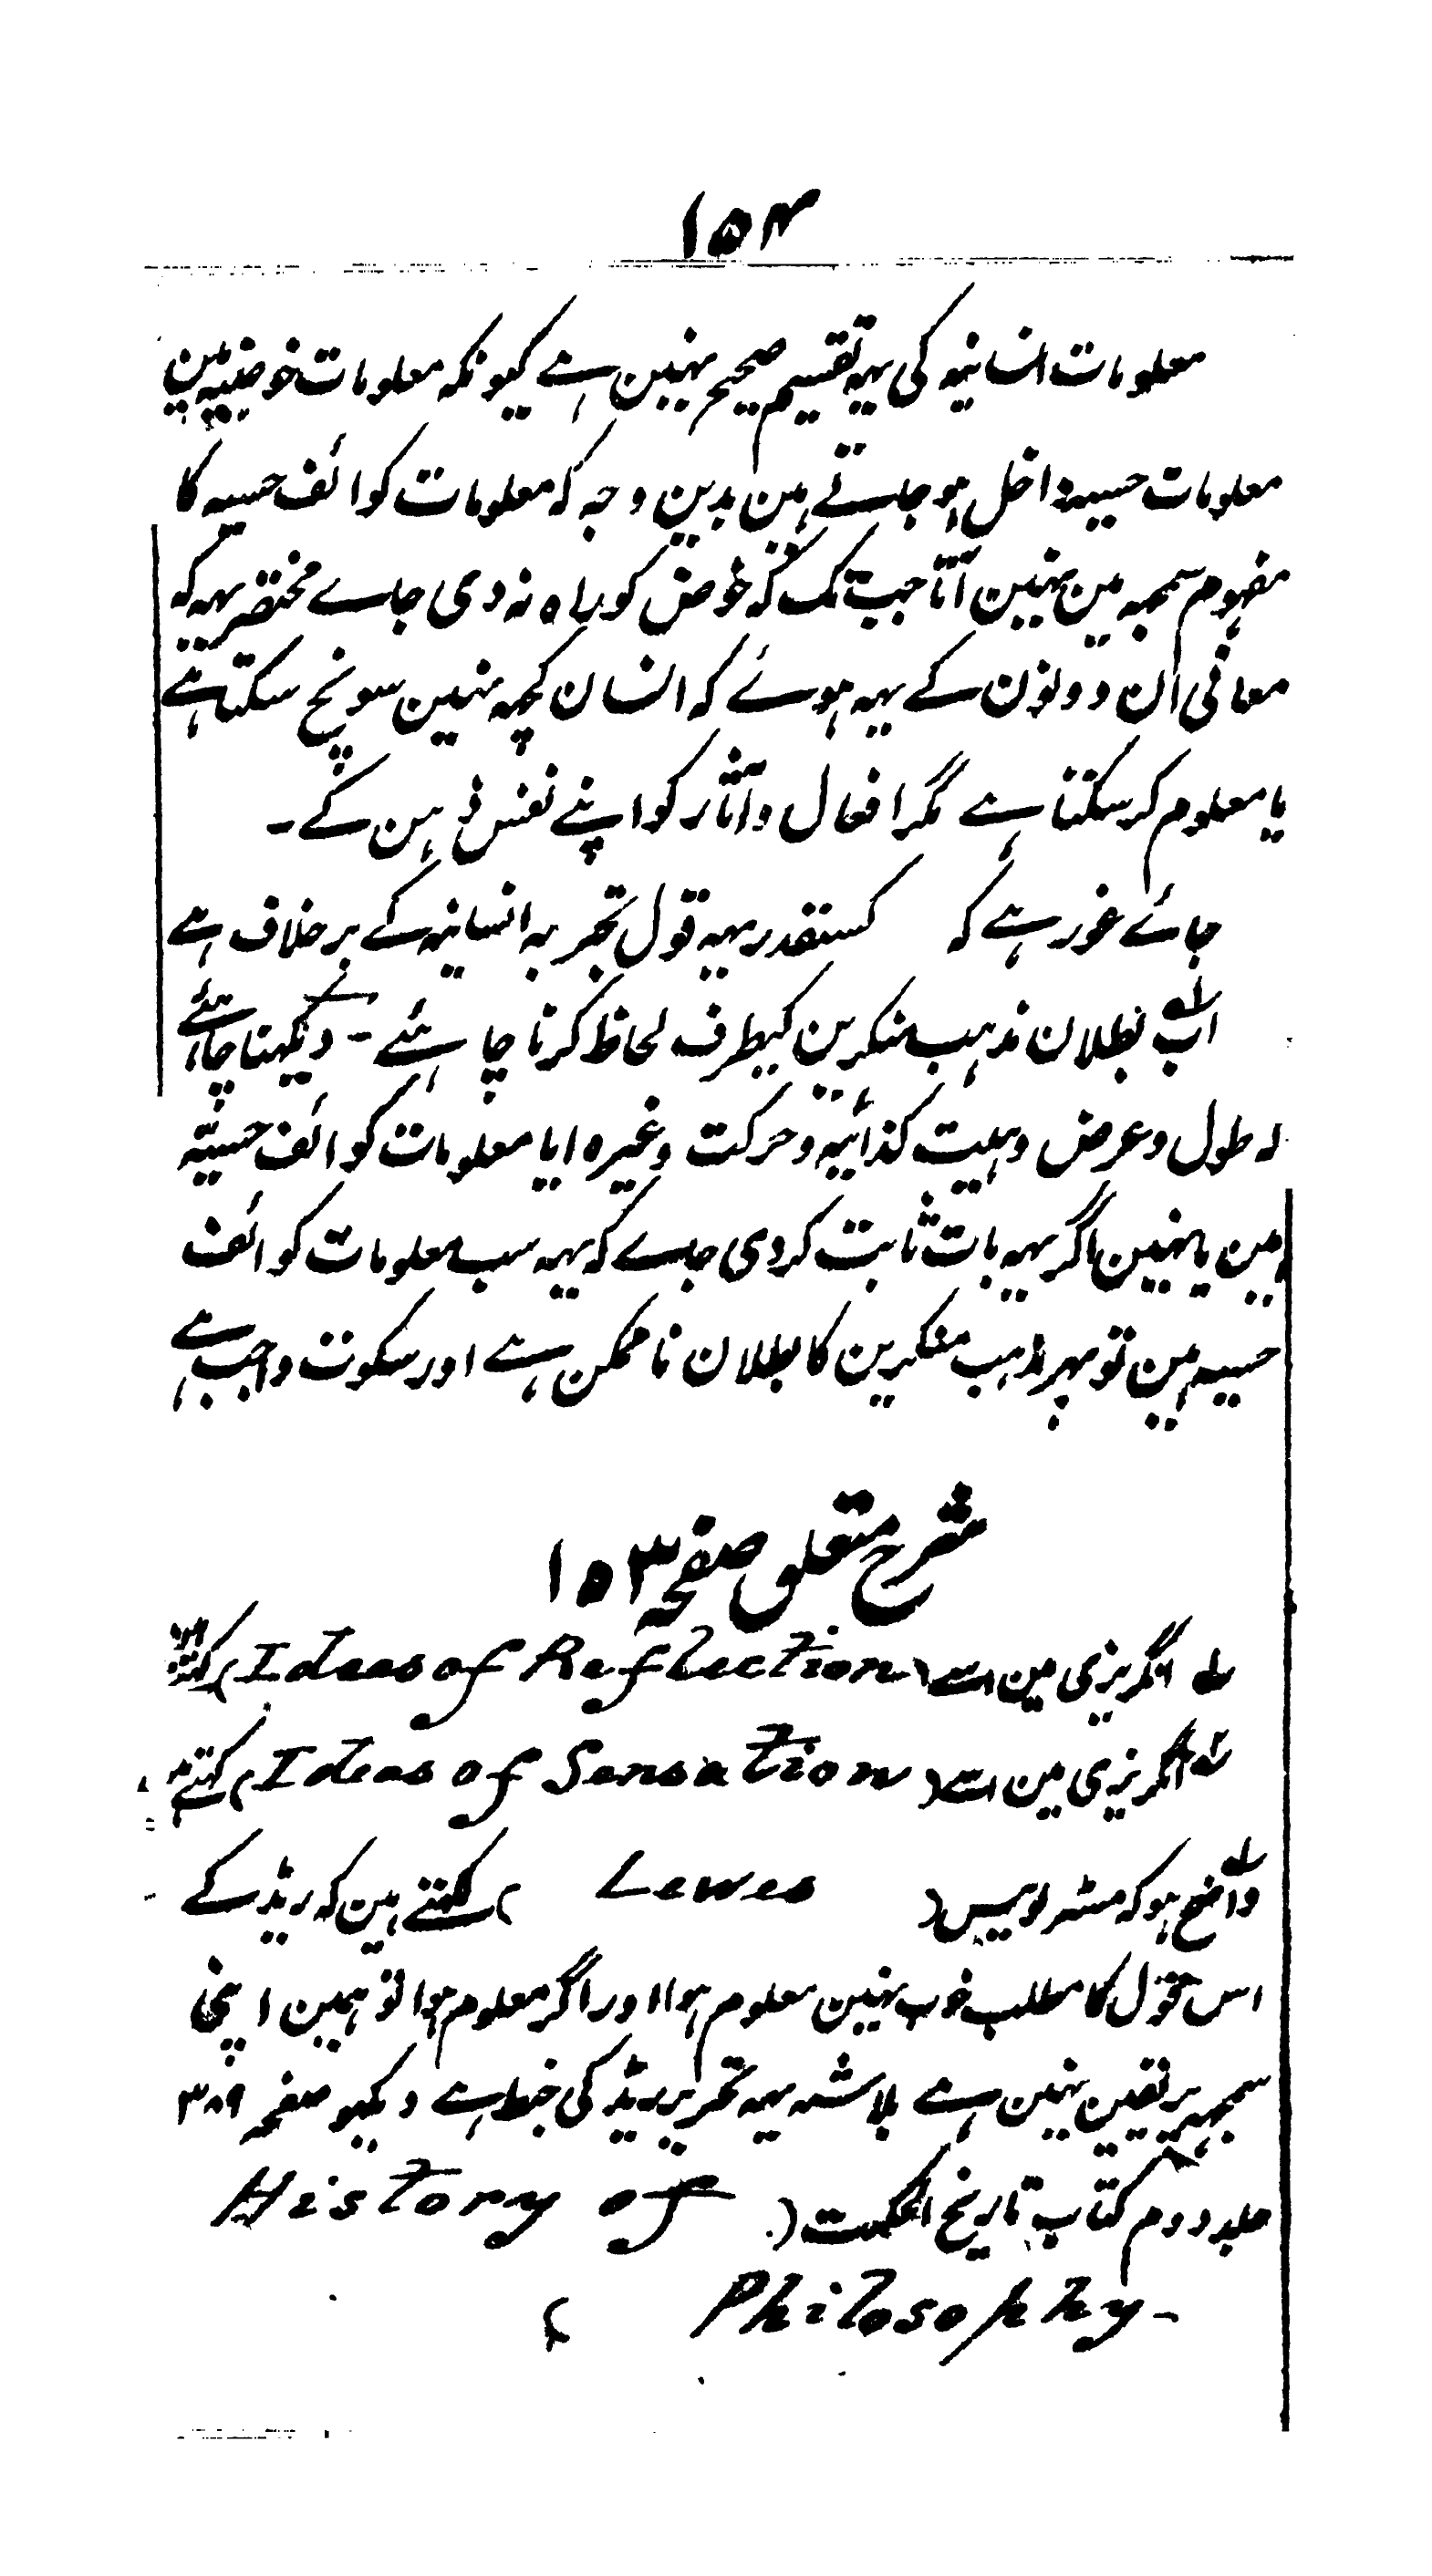 ۱۵۴
معلومات انسانیہ کی یہہ تقسیم صحیح نہین ہے کیونکہ معلومات خوضیہ مین
معلومات حسیہ داخل ہو جاتے ہین بدین وجہ کہ معلومات کوائف حسیہ کا
مفہوم سمجہ مین نہین آتا جب تک کہ خوض کو راہ نہ دی جاے مختصر یہہ کہ
معانی ان دونون کے یہہ ہوئے کہ انسان کچہہ نہین سونچ سکتا ہے
یا معلوم کر سکتا ہے مگر افعال و آثار کو اپنے نفس ذہن کے ۔
جائے غور ہے کہ کسقدر یہہ قول تجربہ انسانیہ کے برخلاف ہے
اب بطلان مذہب منکرین کیطرف لحاظ کرنا چاہئے ۔ دیکہنا چاہئے
کہ طول و عرض وہیت کذائیہ و حرکت وغیرہ ایا معلومات کوائف حسیّہ
ہین یا نہین اگر یہہ بات ثابت کر دی جاے کہ یہہ سب معلومات کوائف
حسیہ ہین تو پہر مذہب منکرین کا بطلان ناممکن ہے اور سکوت واجب ہے
شرح متعلق صفحہ ۱۵۳
لہ انگریزی مین اسے (Ideas of Reflection) کہتے ہین
لہ انگریزی مین اسے (Ideas of Sensation) کہتے ہین
واضح ہو کہ مسٹر لویس (Lewes) کہتے ہین کہ ریڈ کے
اس قول کا مطلب خوب نہین معلوم ہوا اور اگر معلوم ہوا تو ہمین اپنی
سمجہہ پر یقین نہین ہے بلا شبہ یہہ تحریر ریڈ کی خبط ہے دیکہو صفحہ ۳۸۹
جلد دوم کتاب تاریخ الحکمت (History of
Philosophy-)